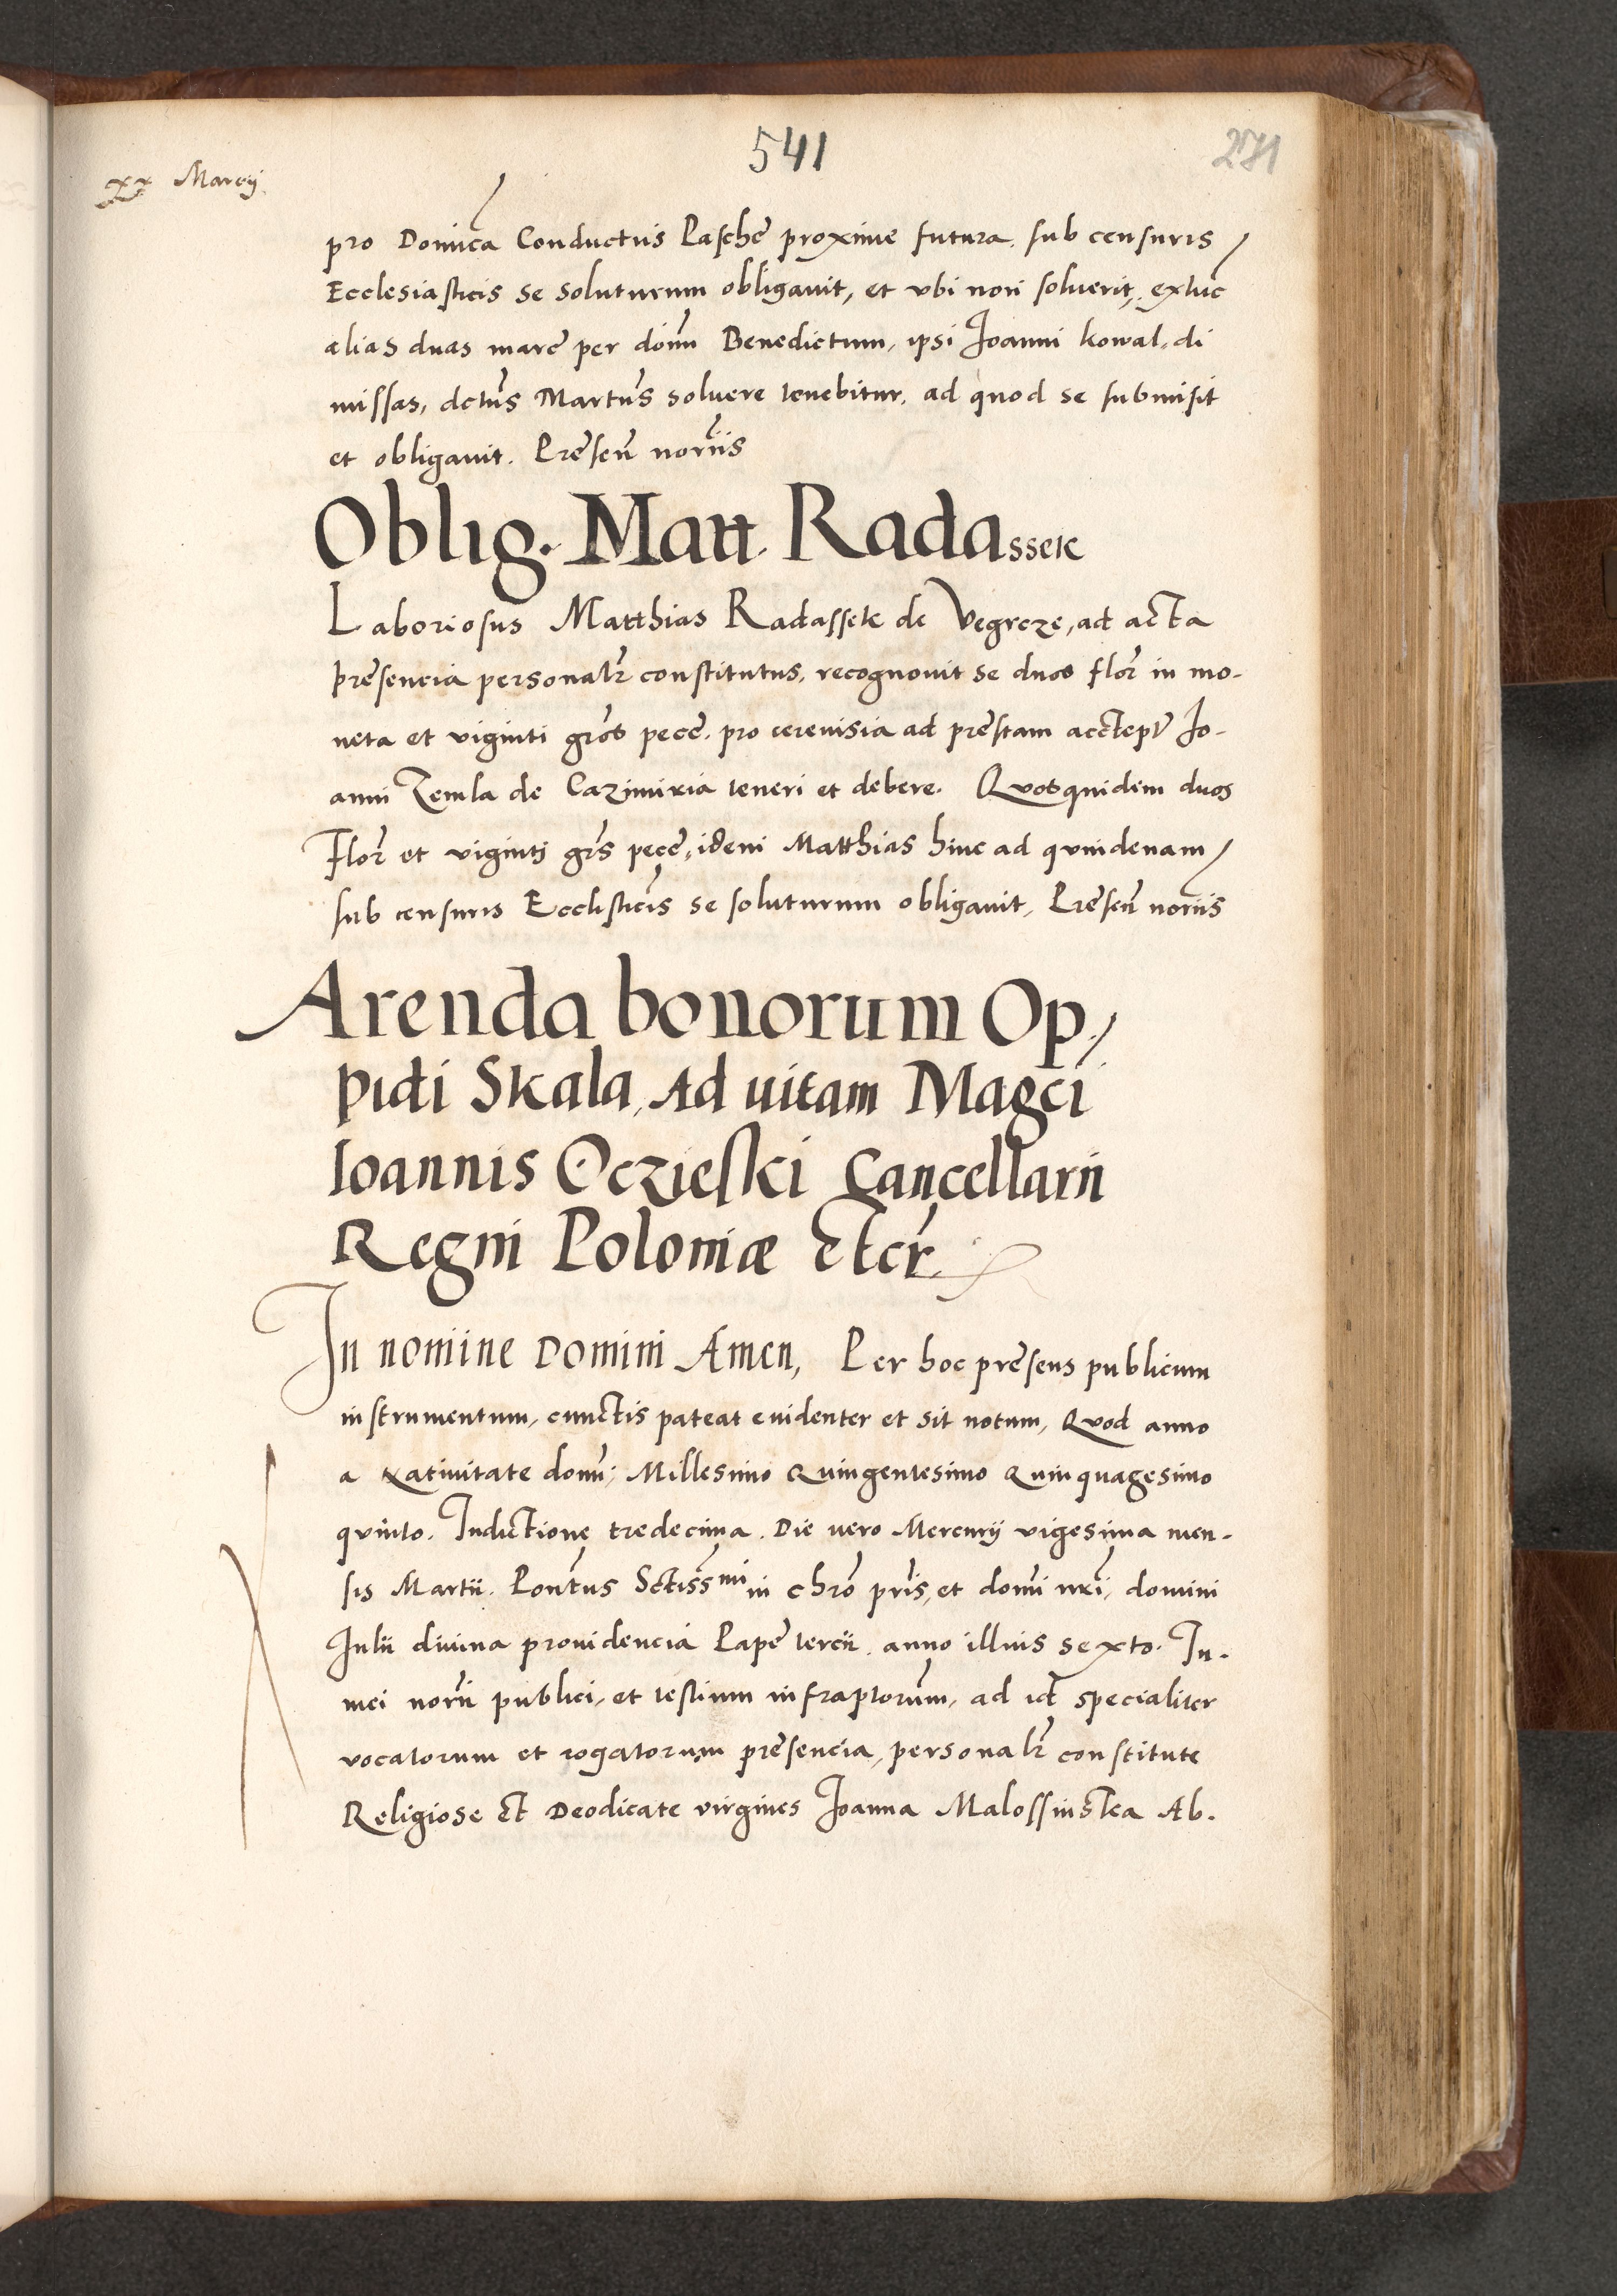 541
271
xx Marcij
pro Domica Conductus Pasche proxime futura, sub censuris
Ecclesiasticis se soluturum obligauit, et vbi non soluerit, extunc
alias duas marc per domi Benedictum, ipsi Joanni kowal, di
missas, dctus Martus soluere tenebitur, ad quod se submisit
et obligauit. Presen noriis
Oblig. Matt. Radassek
Laboriosus Matthias Radassek de Vegrcze, ad acta
presencia personalr constitutus, recognouit se duos flor in mo-
neta et viginti gros pece. pro cereuisia ad prestam Jo-
anni Zemla de Cazimiria teneri et debere. Quosquidem duos
Flor et viginti grs pece, idem Matthias hinc ad quindenam
sub censuris Ecclisticis se soluturum obligauit, Presen noriis
Arenda bonorum Op,
pidi Skala, Ad uitam Magci
Ioannis Oczieski Cancellarii
Regni Poloniæ etcr.
In nomine Domini Amen, Per hoc presens publicum
instrumentum, cunctis pateat euidenter et sit notum, Quod anno
a Natiuitate domi, Millesimo Quingentesimo Quinquagesimo
quinto. Indictione tredecima. Die uero Mercurij vigesima men-
sis Martii. Pontus Sctiss mi in chro pris, et domi nri, domini
Julii diuina prouidencia Pape tercii. anno illius sexto. In
mei norii publici, et testium infraptorum, ad id specialiter
vocatorum et rogatorum presencia, personalr constitute
Religiose et Deodicate virgines Joanna Malossinsca Ab.